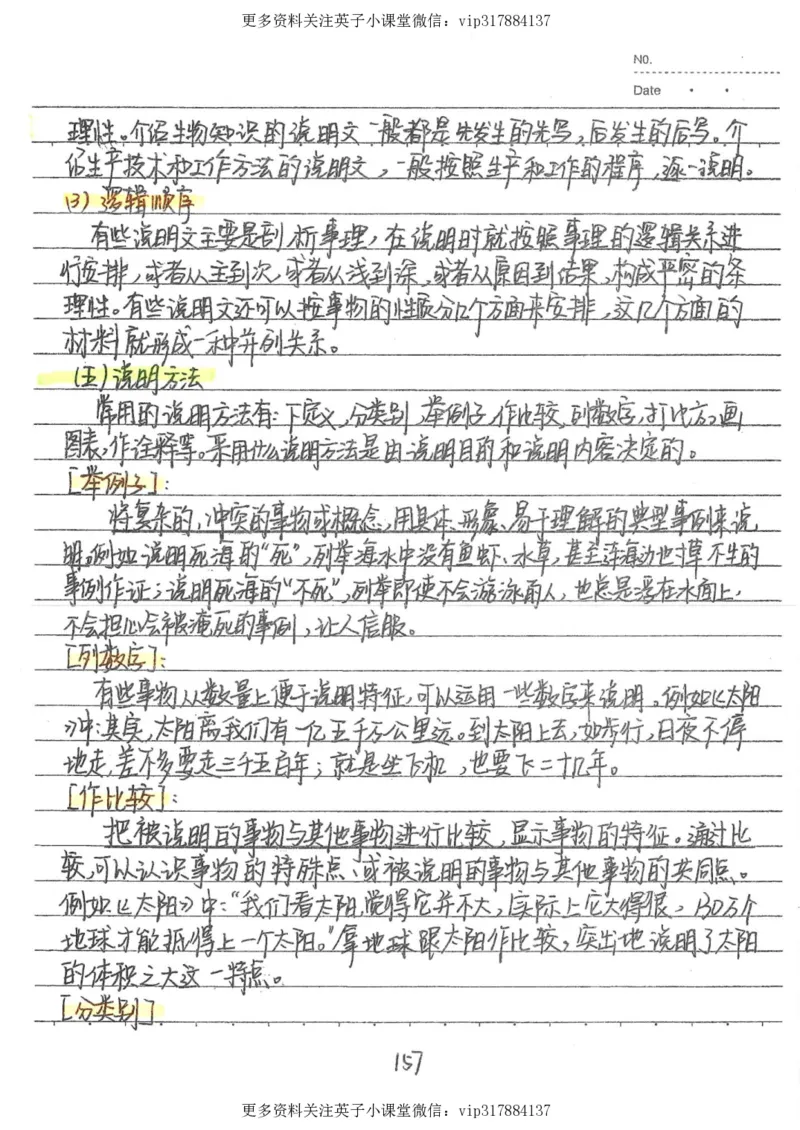 更多资料关注英子小课堂微信：vip317884137
NO.
Date
理性。介绍生物知识的说明文一般都是先发生的先写，后发生的后写。介
绍生产技术和工作方法的说明文，一般按照生产和工作的程序，逐一说明。
(3) 逻辑顺序
有些说明文主要是剖析事理，在说明时就按照事理的逻辑关系进
行安排，或者从主到次，或者从浅到深，或者从原因到结果，构成严密的条
理性。有些说明文还可以按事物的性质分几个方面来安排，这几个方面的
材料就形成一种并列关系。
(五)说明方法
常用的说明方法有：下定义，分类别，举例子，作比较，列数字，打比方，画
图表，作诠释等。采用什么说明方法是由说明目的和说明内容决定的。
[举例子]：
将复杂的，冲突的事物或概念，用具体、形象、易于理解的典型事例来说
明。例如说明死海的“死”，列举海水中没有鱼虾、水草，甚至连海边也寸草不生的
事例作证；说明死海的“不死”，列举即使不会游泳的人，也总是浮在水面上，
不会担心会被淹死的事例，让人信服。
[列数字]：
有些事物从数量上便于说明特征，可以运用一些数字来说明。例如《太阳
》中：其实，太阳离我们有一亿五千万公里远。到太阳上去，如步行，日夜不停
地走，差不多要走三千五百年；就是坐飞机，也要飞二十几年。
[作比较]：
把被说明的事物与其他事物进行比较，显示事物的特征。通过比
较，可以认识事物的特殊点、或被说明的事物与其他事物的共同点。
例如《太阳》中：“我们看太阳，觉得它并不大，实际上它大得很，130万个
地球才能抵得上一个太阳。”拿地球跟太阳作比较，突出地说明了太阳
的体积之大这一特点。
[分类别]
157
更多资料关注英子小课堂微信：vip317884137